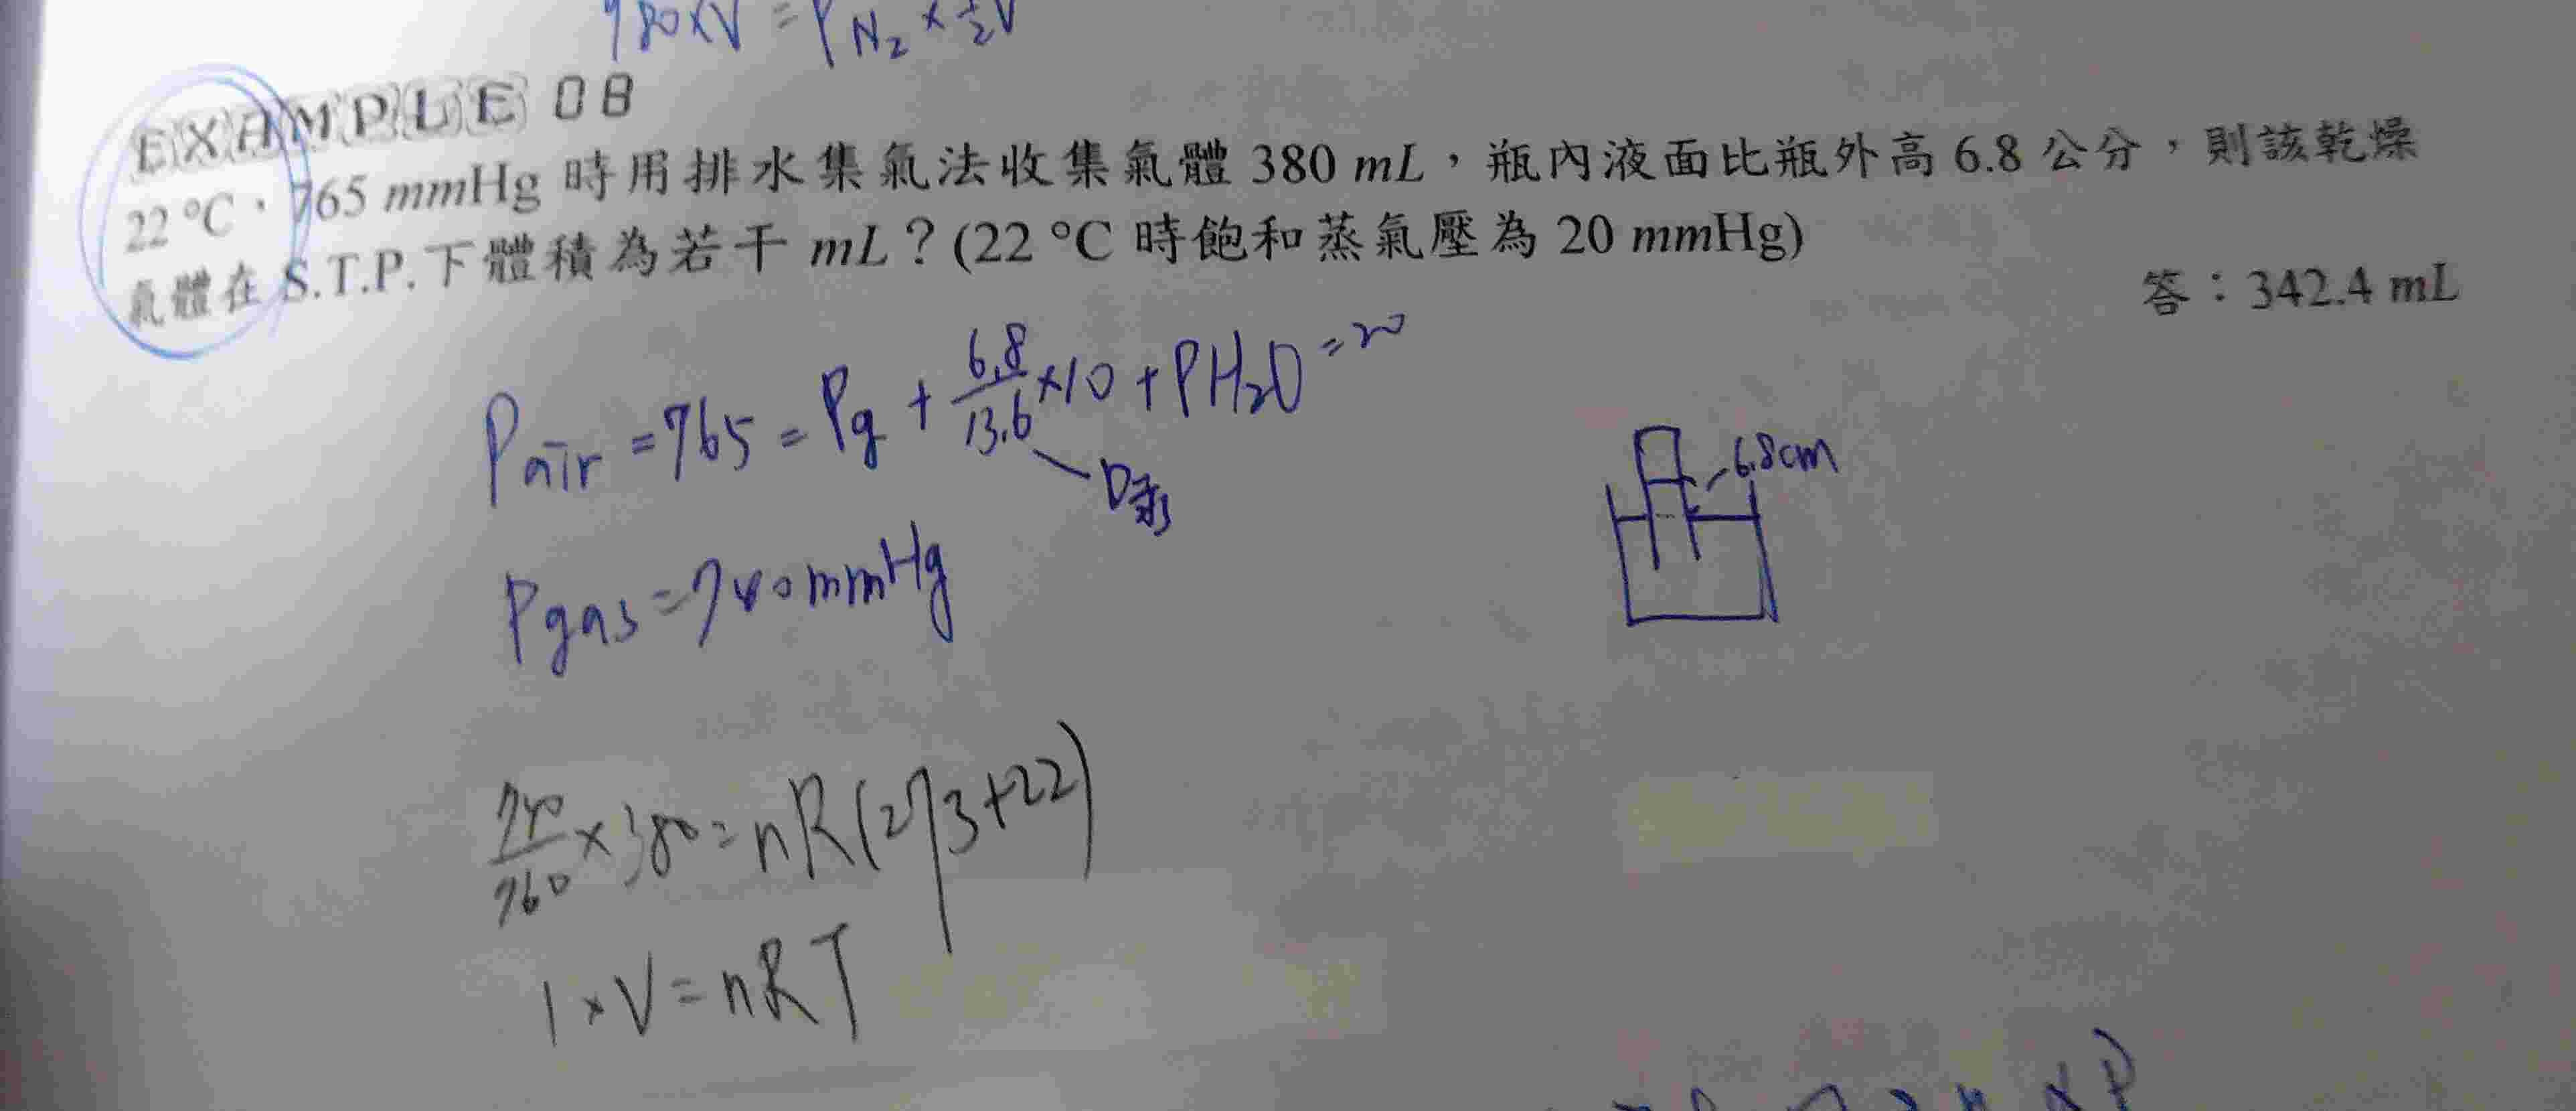 980×V = P N₂ × ½V
EXAMPLE 08
22 °C，765 mmHg 時用排水集氣法收集氣體 380 mL，瓶內液面比瓶外高 6.8 公分，則該乾燥
氣體在 S.T.P. 下體積為若干 mL？(22 °C 時飽和蒸氣壓為 20 mmHg)
答：342.4 mL
Pair = 765 = Pg + 6.8/13.6 ×10 + PH₂O = 20
D汞
6.8cm
Pgas = 740mmHg
740/760 × 380 = nR(273+22)
1 × V = nRT